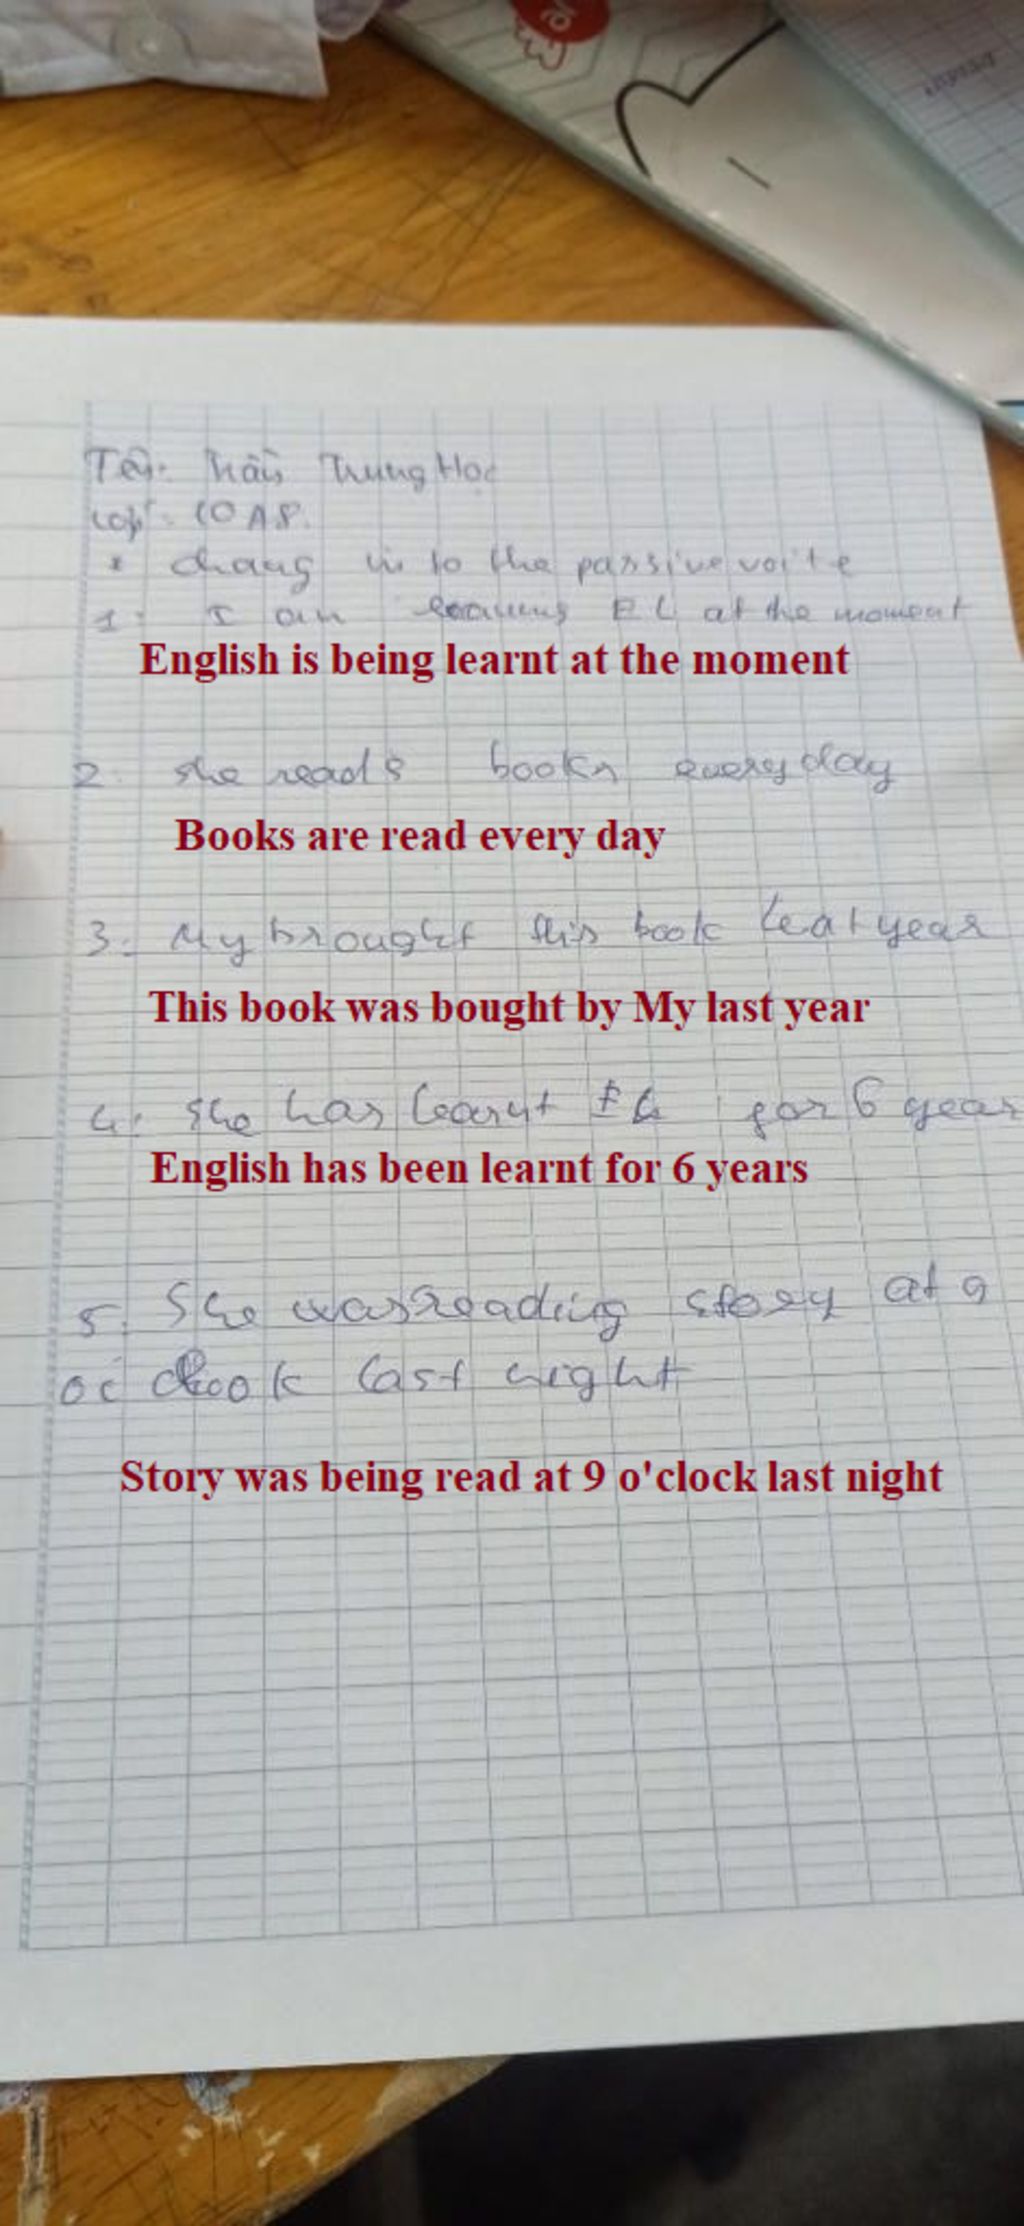 Tên: Trần Trung Học
Lớp: 10A8.
* chang in to the passive voite
1: I am learning EL at the moment
English is being learnt at the moment
2. she reads books everyday
Books are read every day
3. My brought this book leat year
This book was bought by My last year
4: She has learnt EL for 6 year
English has been learnt for 6 years
5. She was reading story at 9
oc clook last night
Story was being read at 9 o'clock last night